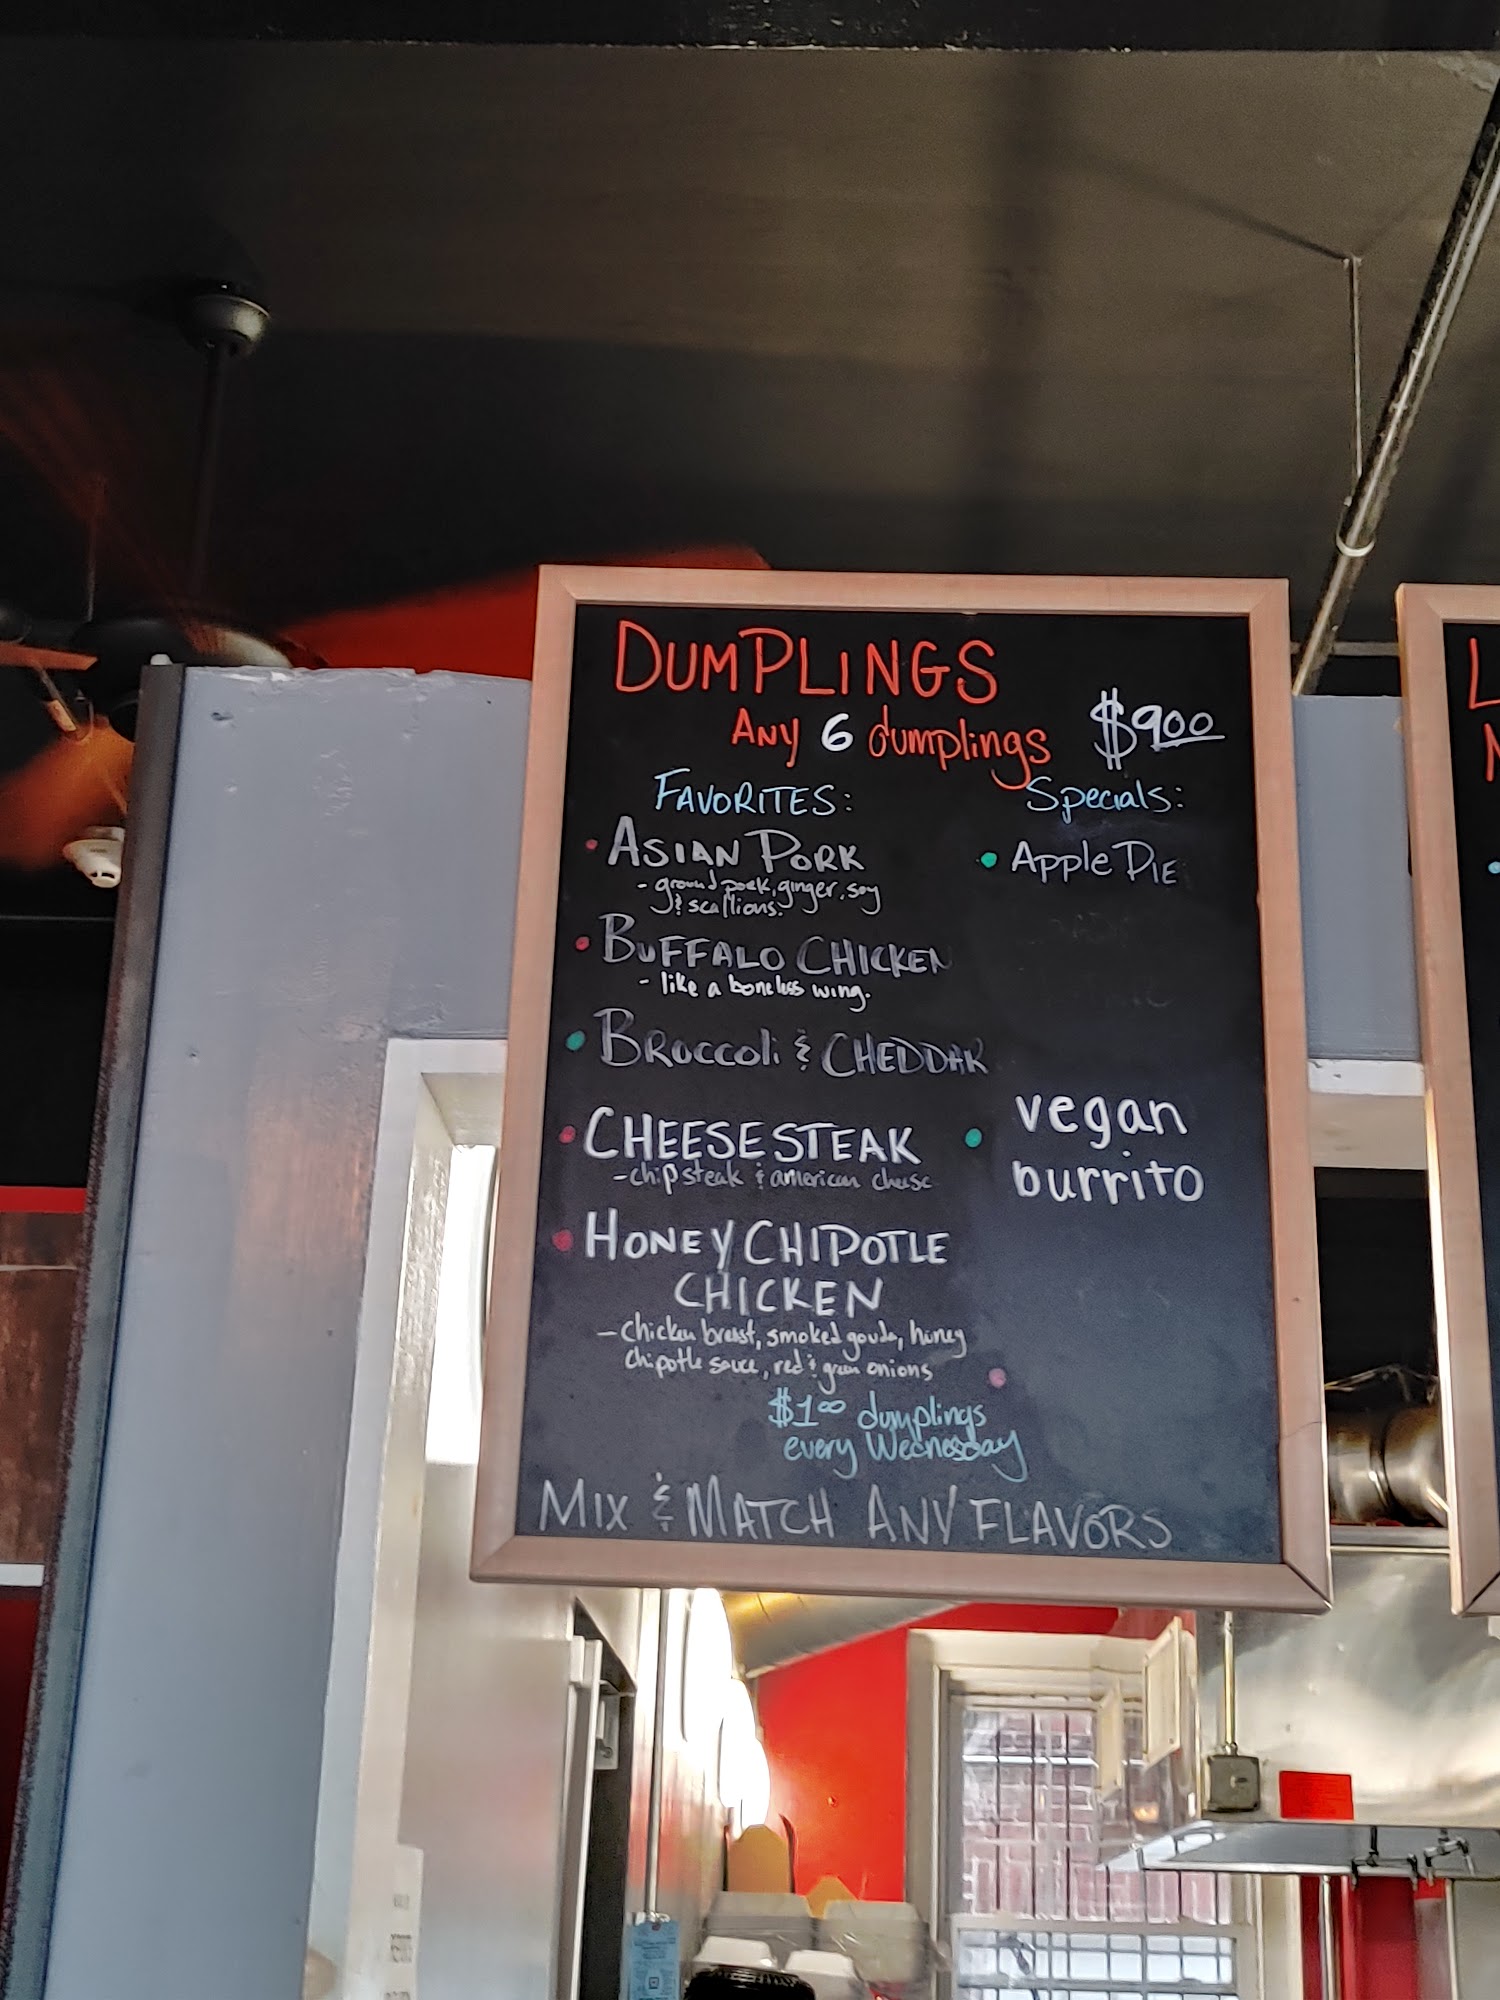 DUMPLINGS
ANY 6 dumplings $9.00
FAVORITES:
ASIAN PORK
- ground pork, ginger, soy
& scallions.
BUFFALO CHICKEN
- like a boneless wing.
BROCCOLi & CHEDDAR
CHEESESTEAK
- chip steak & american cheese
HONEY CHIPOTLE
CHICKEN
- chicken breast, smoked gouda, honey
chipotle sauce, red & green onions
Specials:
Apple PIE
vegan
burrito
$1.00 dumplings
every Wednesday
MIX & MATCH ANY FLAVORS